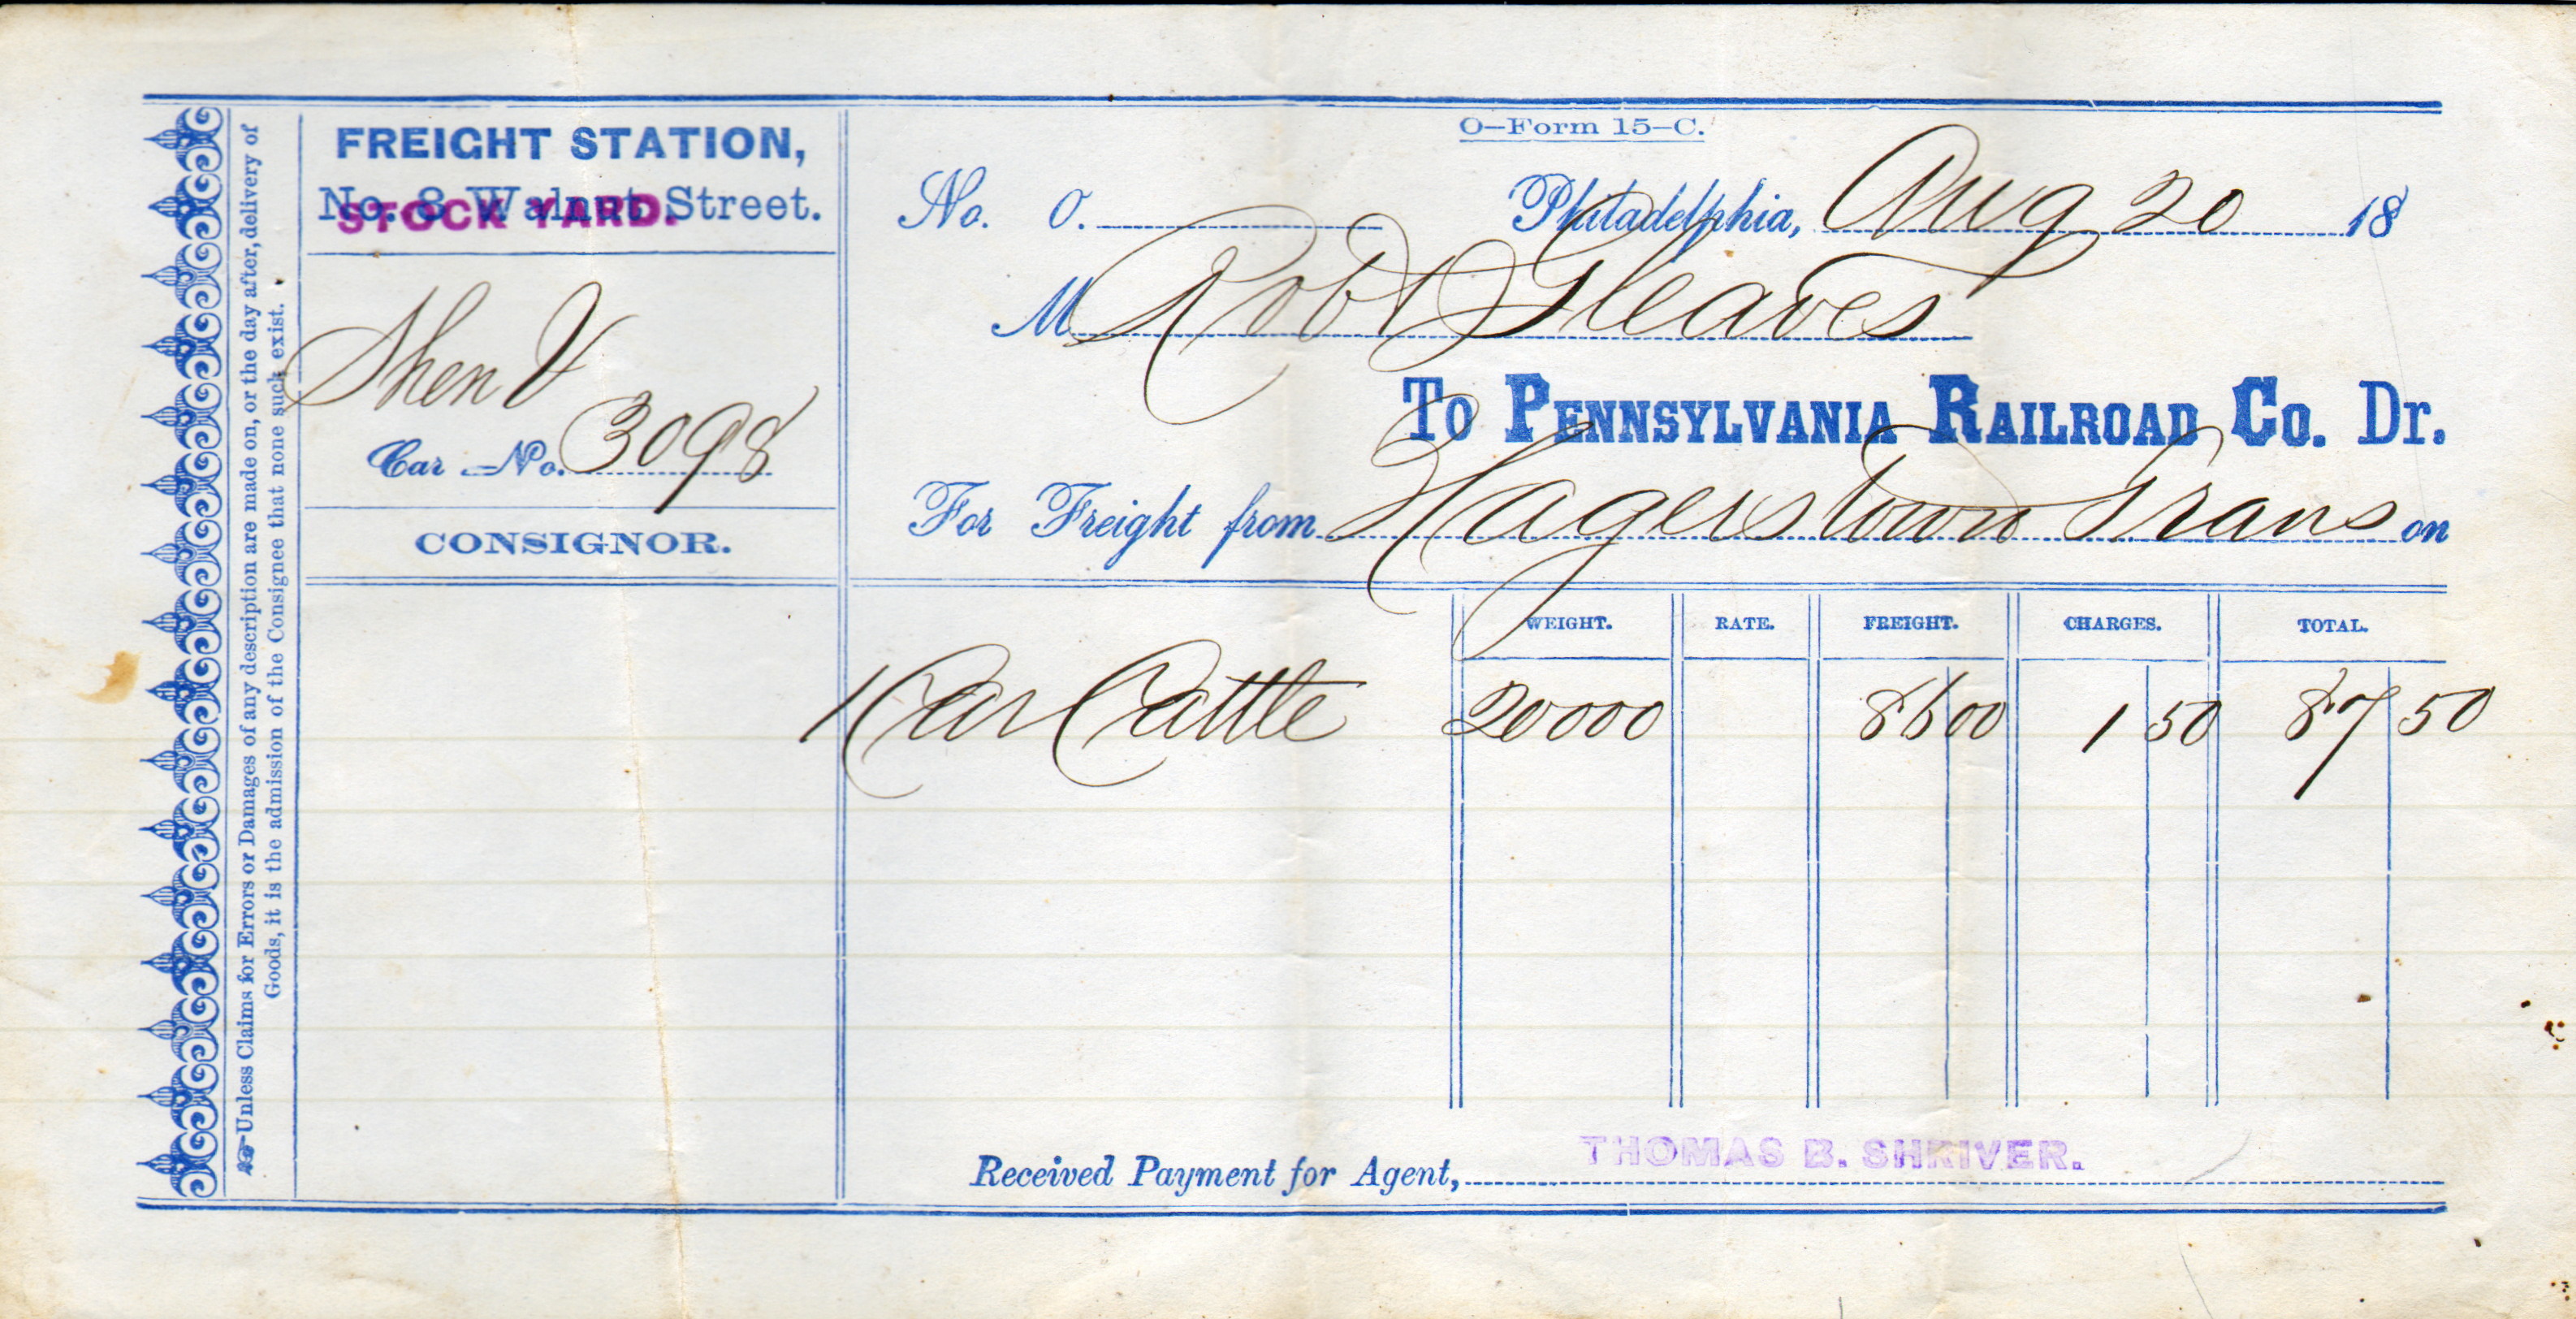 O—Form 15—C.
FREIGHT STATION,
No. 8 Walnut Street.
STOCK YARD.
No. O.
Philadelphia, Aug 20 18
M Robt Gleaves
To PENNSYLVANIA RAILROAD CO. Dr.
Shen V
Car No. 3098
For Freight from Hagerstown Trans on
CONSIGNOR.
WEIGHT. RATE. FREIGHT. CHARGES. TOTAL.
1 Car Cattle 20000 8600 1 50 87 50
Received Payment for Agent, THOMAS B. SHRIVER.
☞Unless Claims for Errors or Damages of any description are made on, or the day after, delivery of
Goods, it is the admission of the Consignee that none such exist.